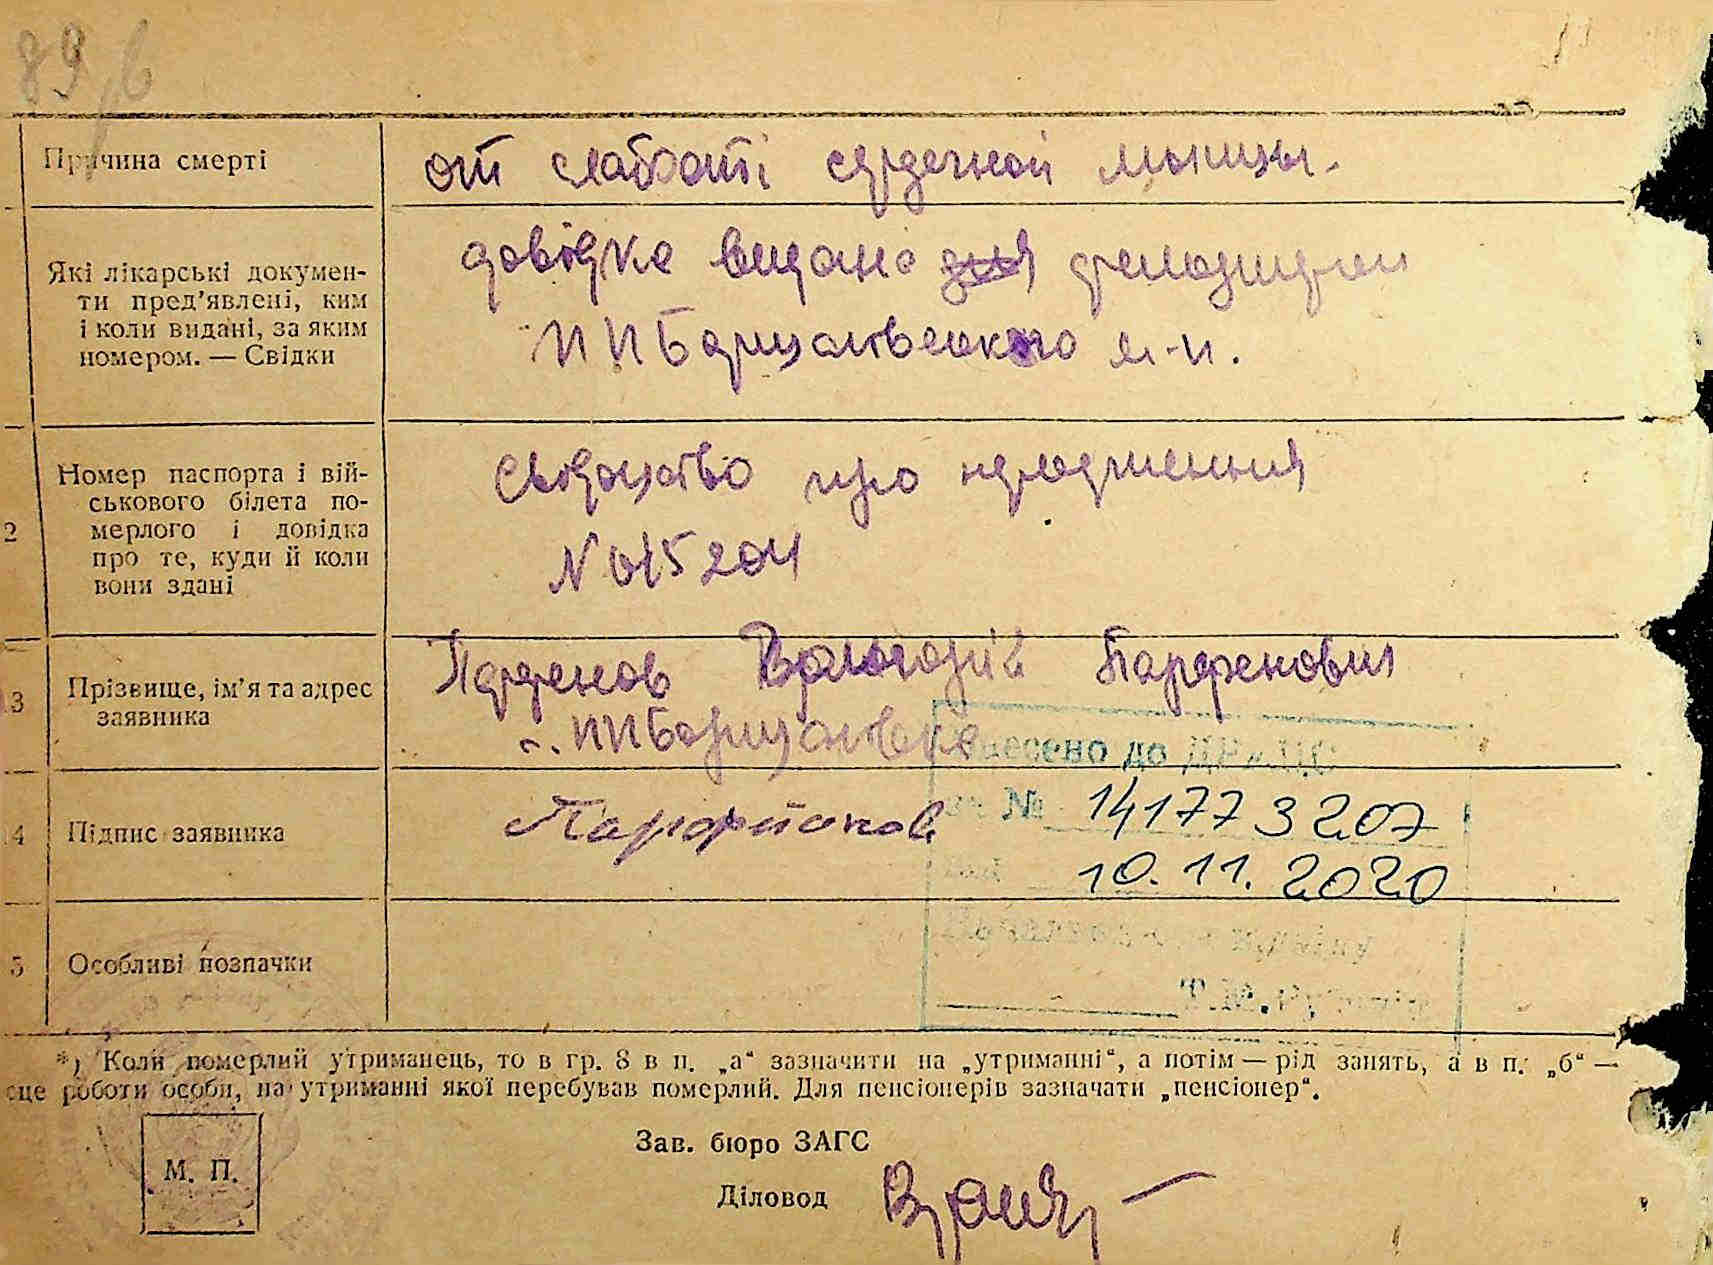 89
Причина смерті
от слабості сердечной мышцы.
Які лікарські докумен-
ти пред'явлені, ким
і коли видані, за яким
номером. — Свідки
довідка видана
ППБорщагівського
Номер паспорта і вій-
ськового білета по-
мерлого і довідка
про те, куди й коли
вони здані
2
свідоцтво про народження
N 015204
3
Прізвище, ім'я та адрес
заявника
Парфенов Парфенович
ППБорщагівка
несено до ДРАЦС
№ 141773207
10.11.2020
4
Підпис заявника
5
Особливі позначки
*) Коли померлий утриманець, то в гр. 8 в п. „а“ зазначити на „утриманні“, а потім — рід занять, а в п. „б“ —
сце роботи особи, на утриманні якої перебував померлий. Для пенсіонерів зазначати „пенсіонер“.
М. П.
Зав. бюро ЗАГС
Діловод